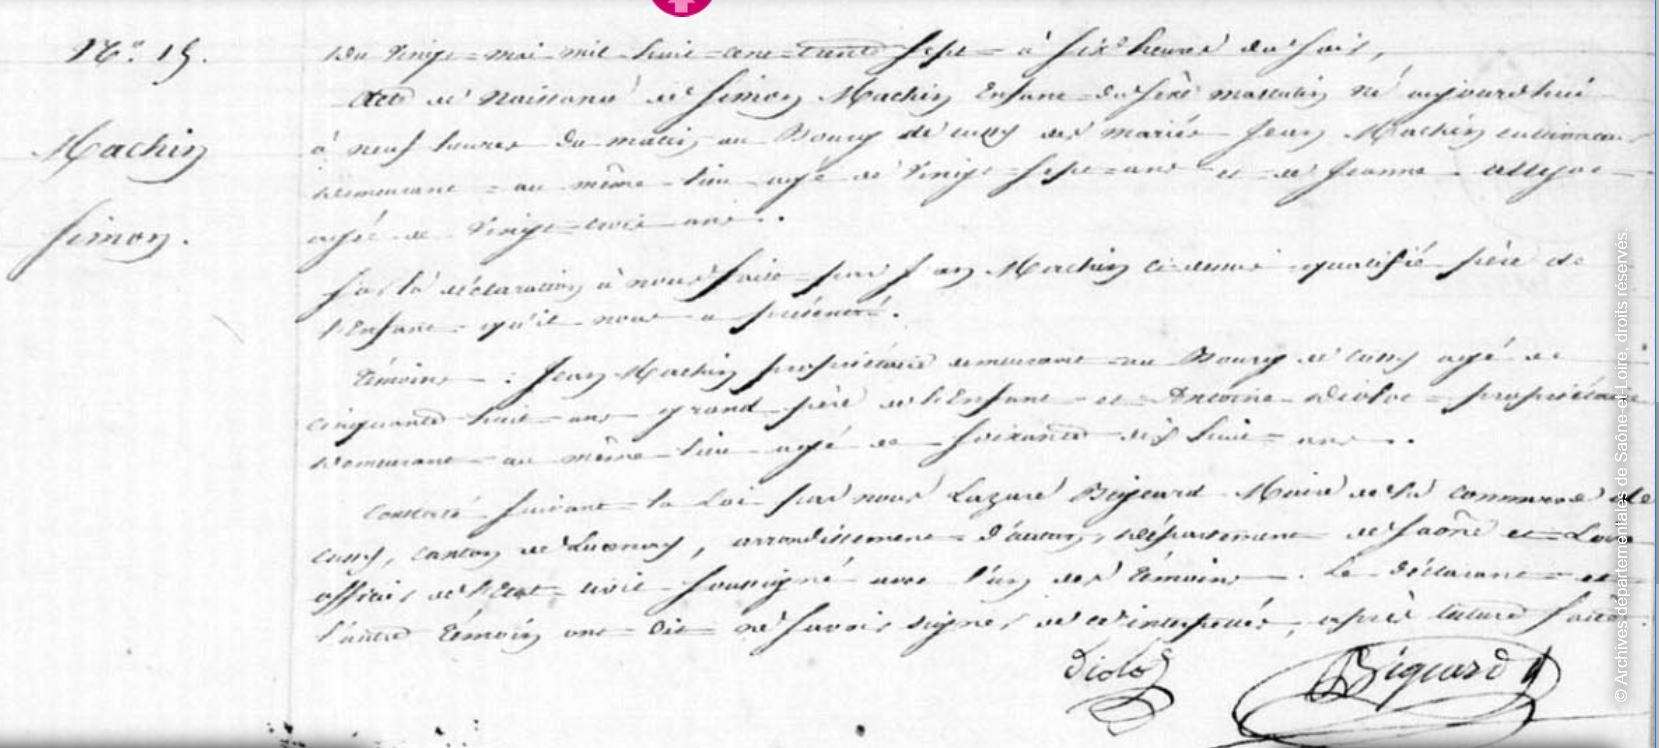 N°. 15.
Machin
Simon.
Du Vingt = mai mil huit = cent = trente Sept = à Six heures du Soir,
Acte de Naissance de Simon Machin Enfant du Sexe masculin né aujourdhui
à neuf heures du matin au Bourg de Cussy des mariés Jean Machin cultivateur
demeurant = au même = lieu agé de Vingt = Sept = ans et de Jeanne
agée de Vingt = trois ans.
Sur la déclaration à nous faite = par Jean Machin ci dessus qualifié père de
l'Enfant = qu'il nous a présenté.
Témoins : Jean Machin propriétaire demeurant au Bourg de Cussy agé de
cinquante huit = ans grand père de l'Enfant = et Antoine Diolot = propriétaire
demeurant = au même lieu agé de Soixante dix huit = ans.
Constaté Suivant la Loi par nous Lazare Bigeard Maire de la commune de
Cussy, canton de Lucenay, arrondissement = d'autun, département de Saône et = Loire
officier de l'Etat = civil Soussigné avec l'un des Témoins. Le déclarant = et
l'autre Témoin ont = Dit = ne Savoir signer de ce interpellés, après lecture faite.
Diolot
Bigeard
© Archives départementales de Saône-et-Loire, droits réservés